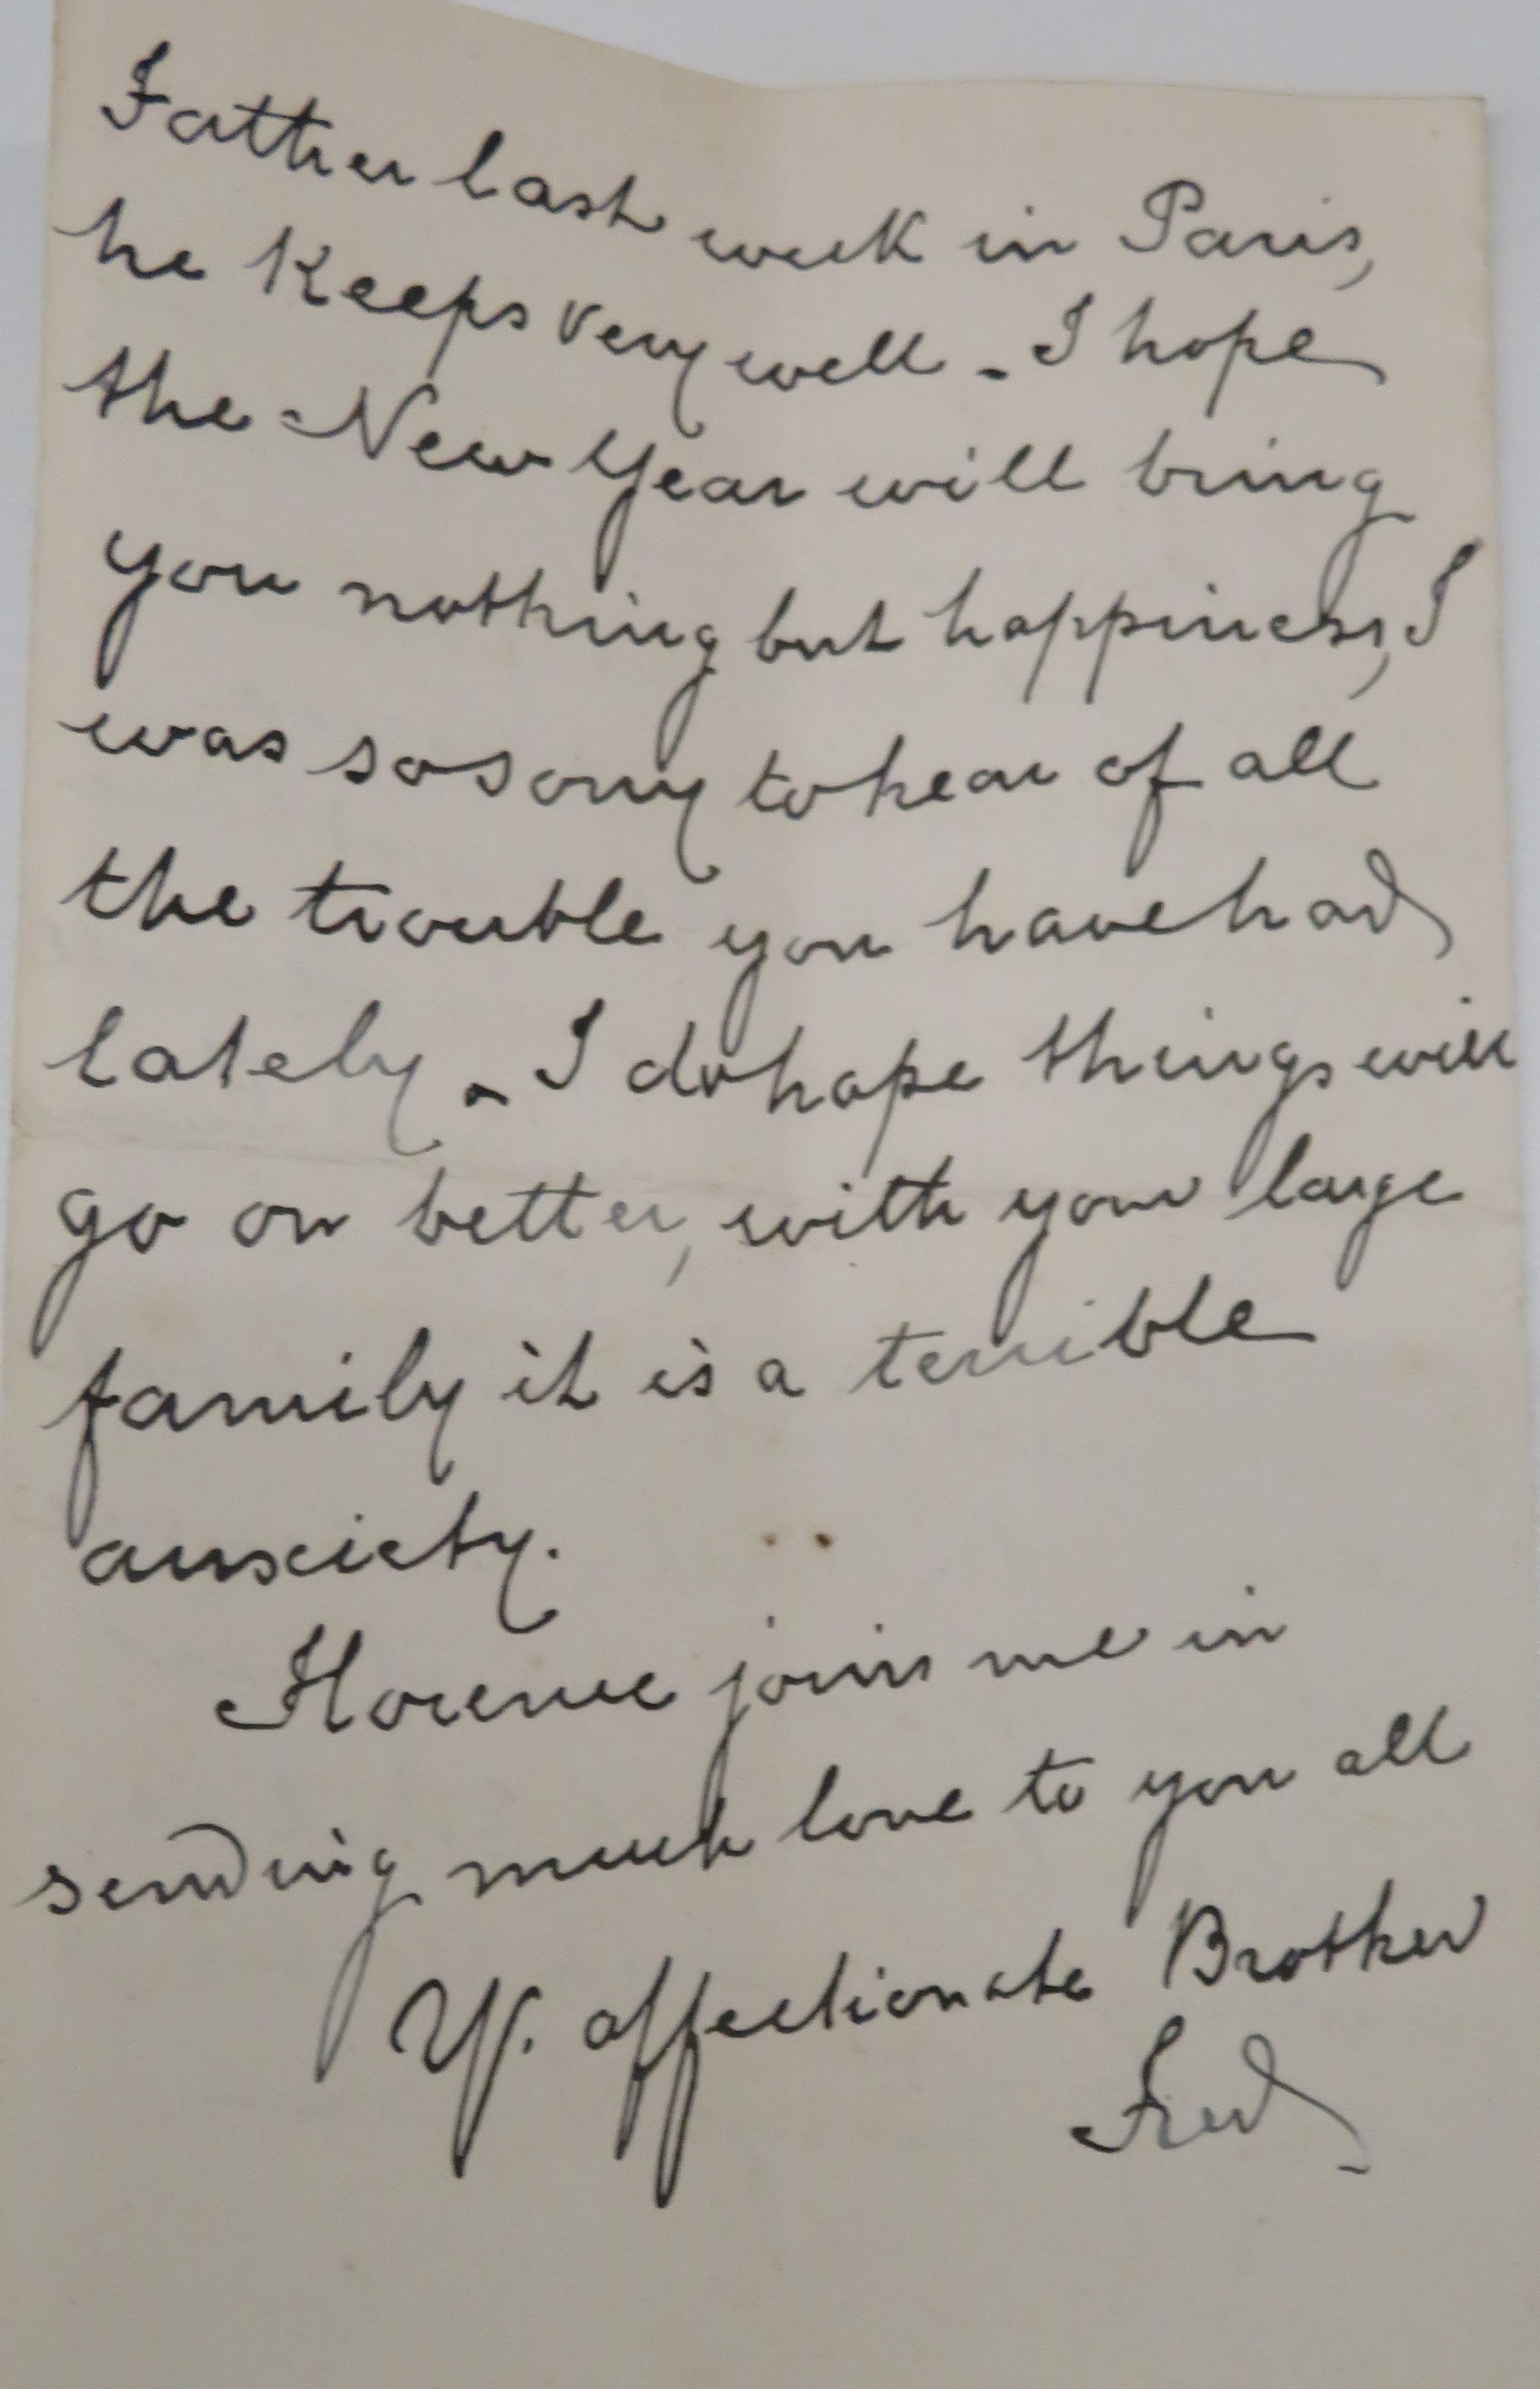 Father last week in Paris,
he keeps very well - I hope
the New Year will bring
you nothing but happiness, I
was so sorry to hear of all
the trouble you have had
lately - I do hope things will
go on better, with your large
family it is a terrible
anxiety.
Florence joins me in
sending much love to you all
Yr. affectionate Brother
Fred